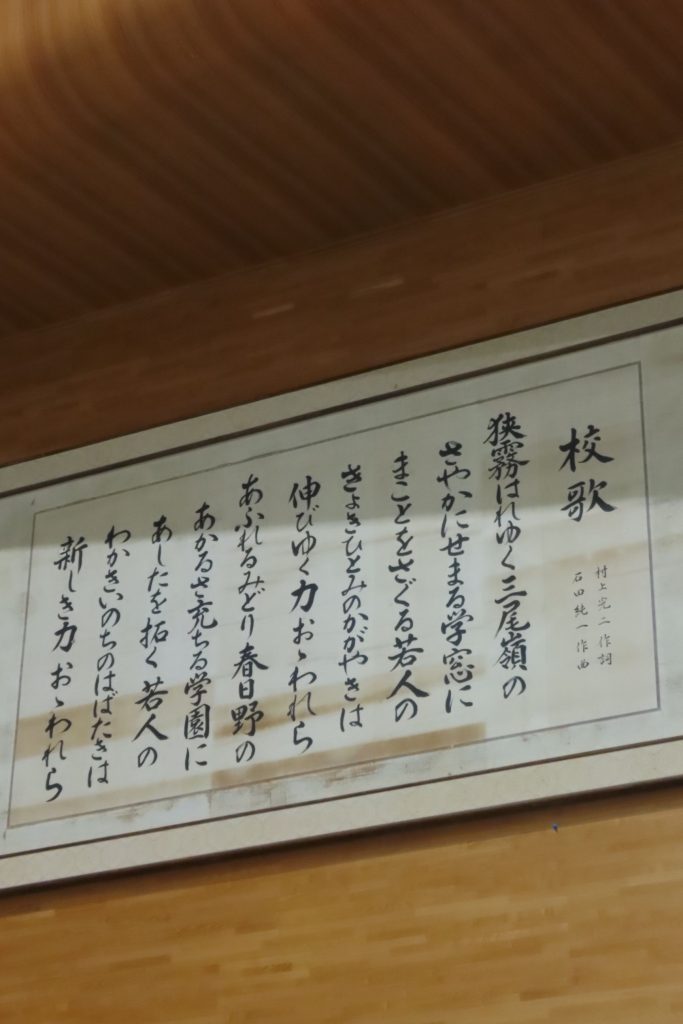 校歌
村上完二作詞
石田純一作曲
狭霧はれゆく三尾嶺の
さやかにせまる学窓に
まことをさぐる若人の
きよきひとみのかがやきは
伸びゆく力おゝわれら
あふれるみどり春日野の
あかるさ充ちる学園に
あしたを拓く若人の
わかきいのちのはばたきは
新しき力おゝわれら